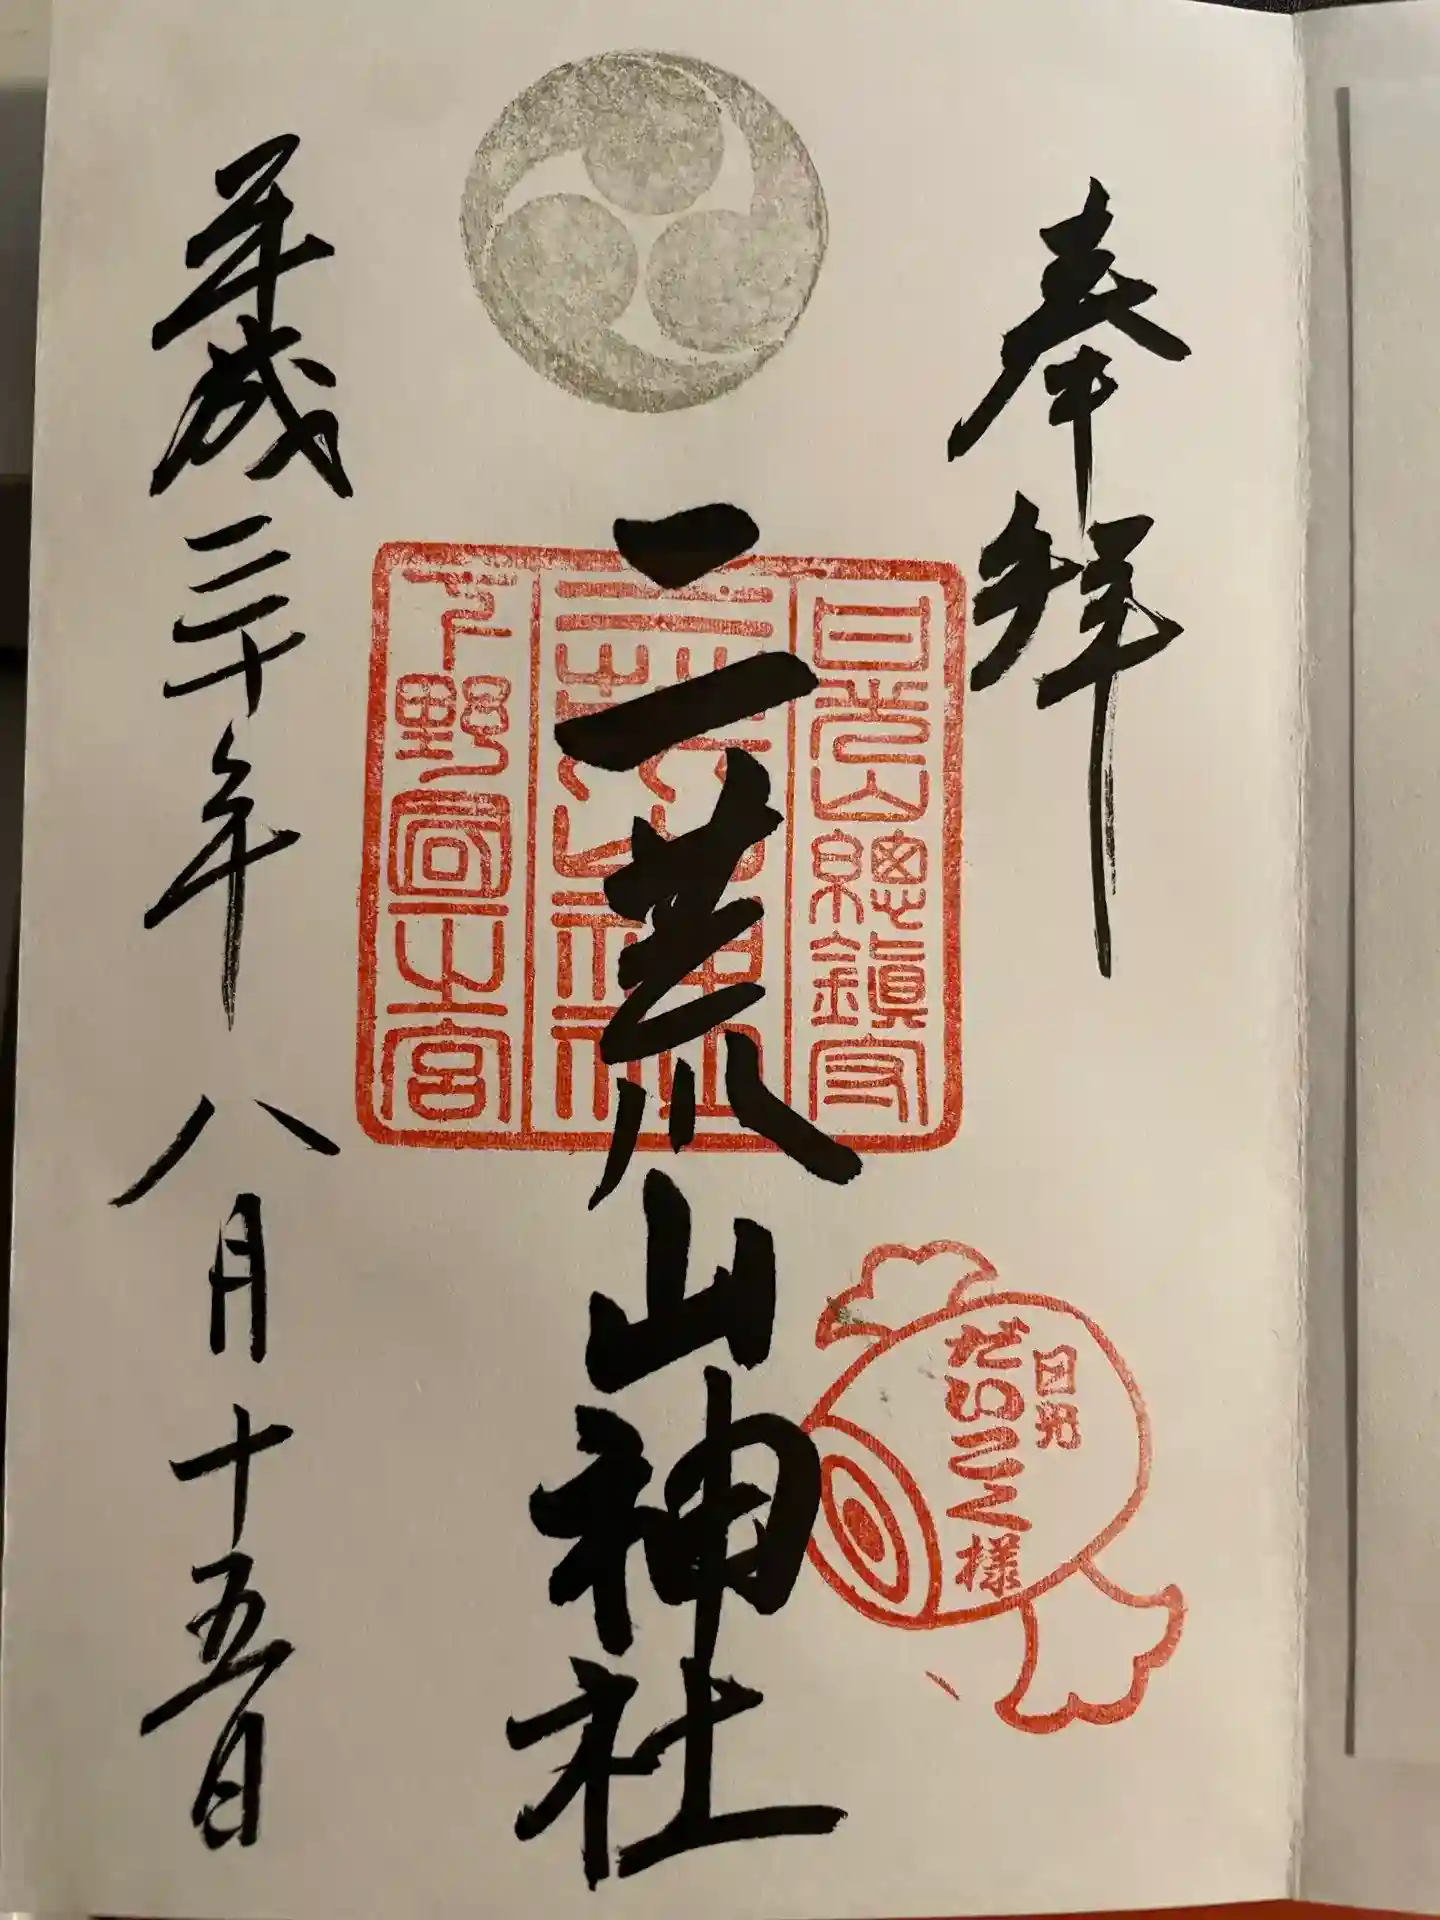 奉拝
日光山總鎮守
二荒山神社
下野國一之宮
日光
だいこく様
平成三十年八月十五日